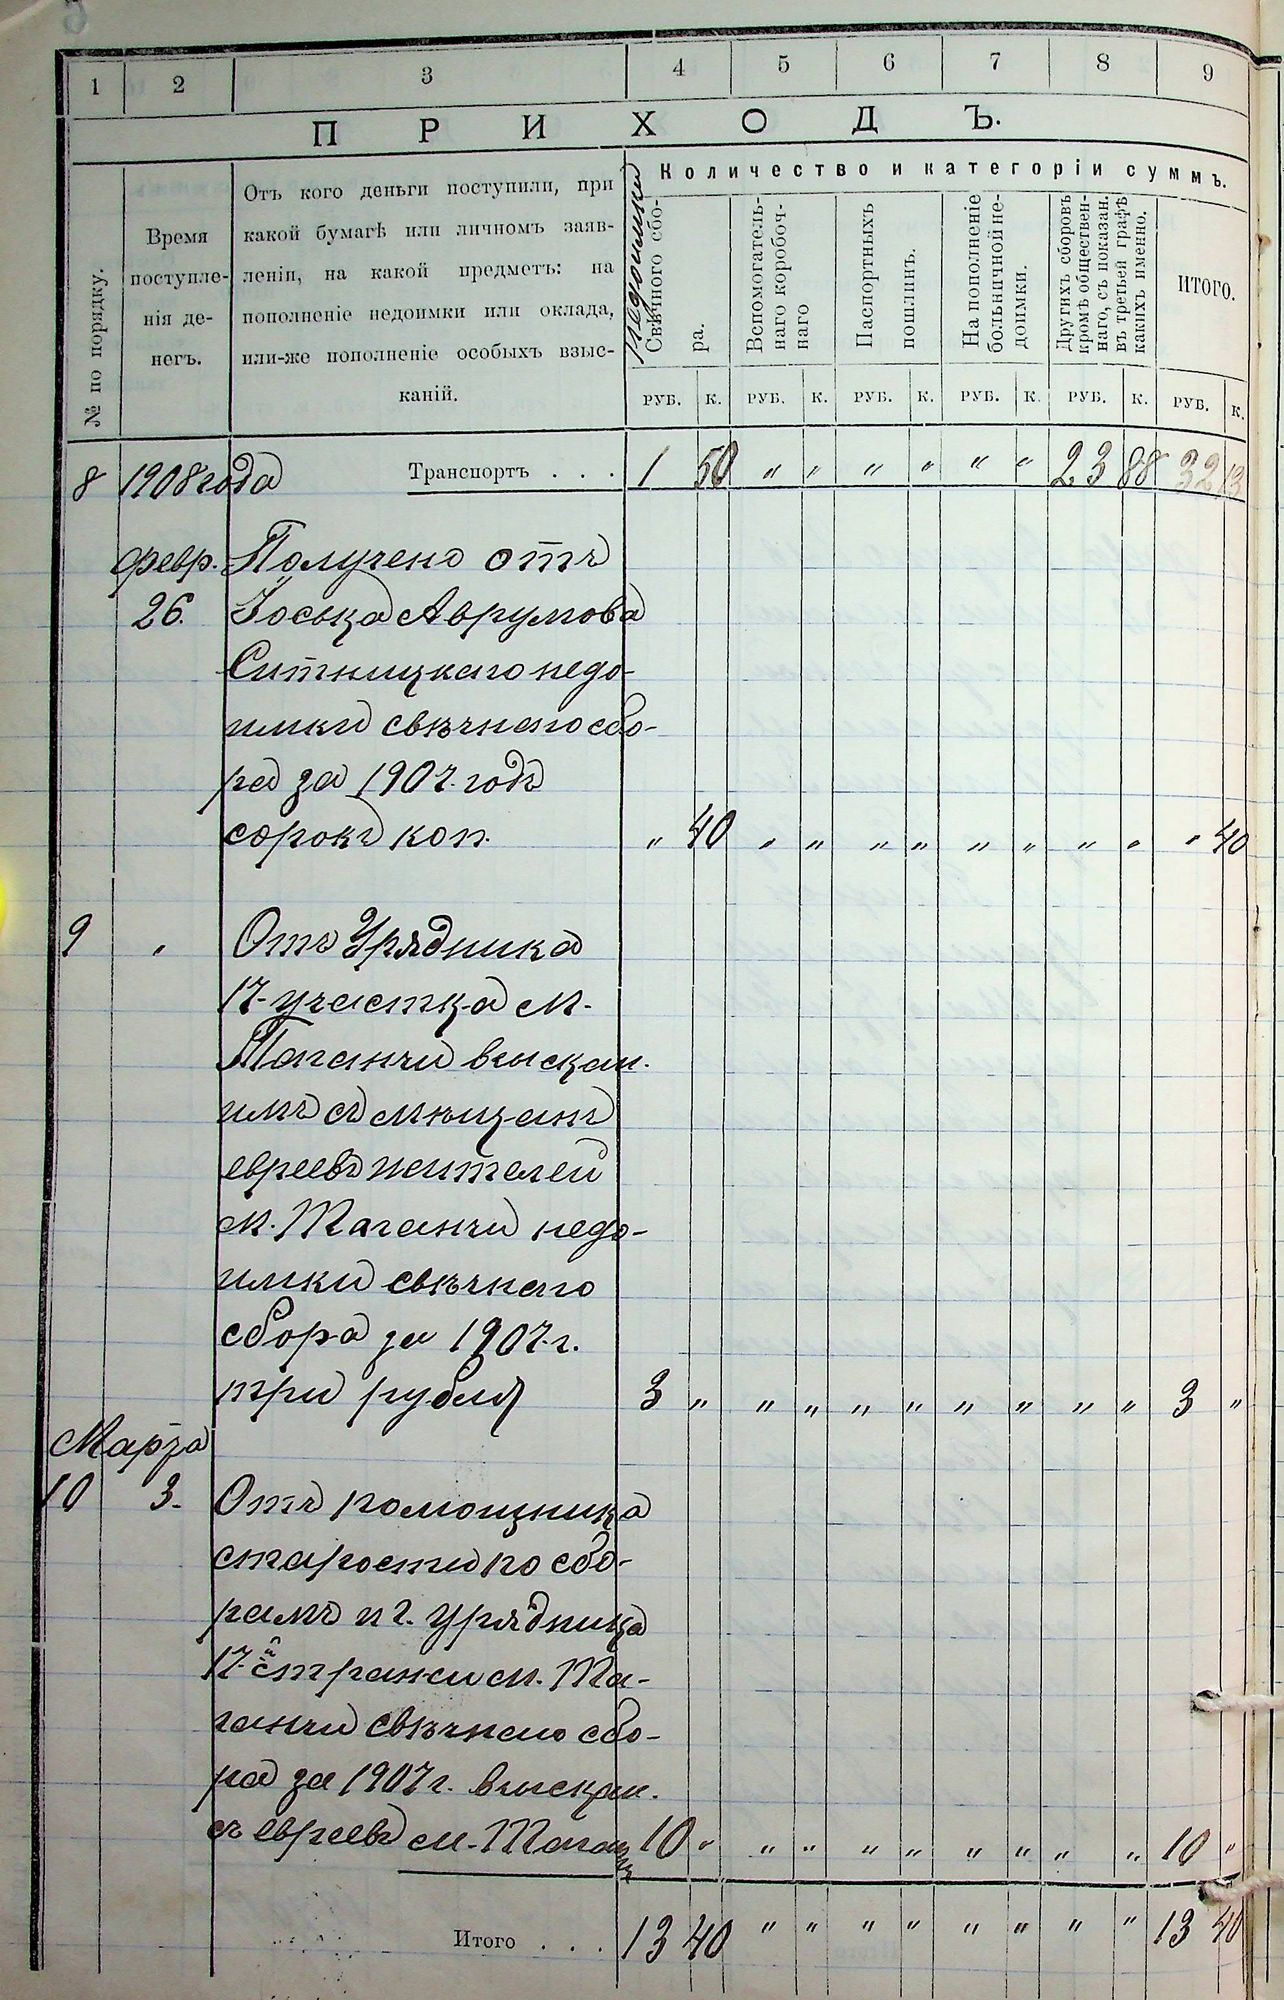 1 2 3 4 5 6 7 8 9
ПРИХОДЪ.
№ по порядку.
Время
поступле-
нія де-
негъ.
Отъ кого деньги поступили, при
какой бумагѣ или личномъ заяв-
леніи, на какой предметъ: на
пополненіе недоимки или оклада,
или-же пополненіе особыхъ взыс-
каній.
Количество и категоріи суммъ.
недоимки
Свѣчного сбо-
ра.
Вспомогатель-
наго коробоч-
наго
Паспортныхъ
пошлинъ.
На пополненіе
больничной не-
доимки.
Другихъ сборовъ
кромѣ обществен-
наго, съ показан.
въ третьей графѣ
какихъ именно.
ИТОГО.
РУБ. К. РУБ. К. РУБ. К. РУБ. К. РУБ. К. РУБ. К.
8 1908 года Транспортъ . . . 1 50 " " " " " " 23 88 32 13
февр. Получено отъ
26. Іоська Аврумова
Ситницкаго недо-
имки свѣчнаго сбо-
ра за 1907. годъ
сорокъ коп. " 40 " " " " " " " " " 40
9 " Отъ Урядника
17-участка м.
Таганчи взыскан.
имъ съ мѣщанъ
евреевъ жителей
м. Таганчи недо-
имки свѣчнаго
сбора за 1907.г.
три рубля 3 " " " " " " " " " 3 "
Марта
10 3. Отъ помощника
старосты по сбо-
рамъ и г. урядника
17-й стражи м. Та-
ганчи свѣчнаго сбо-
ра за 1907 г. взыскан.
съ евреевъ м. Таганчи 10 " " " " " " " " " 10 "
Итого . . . 13 40 " " " " " " " " 13 40